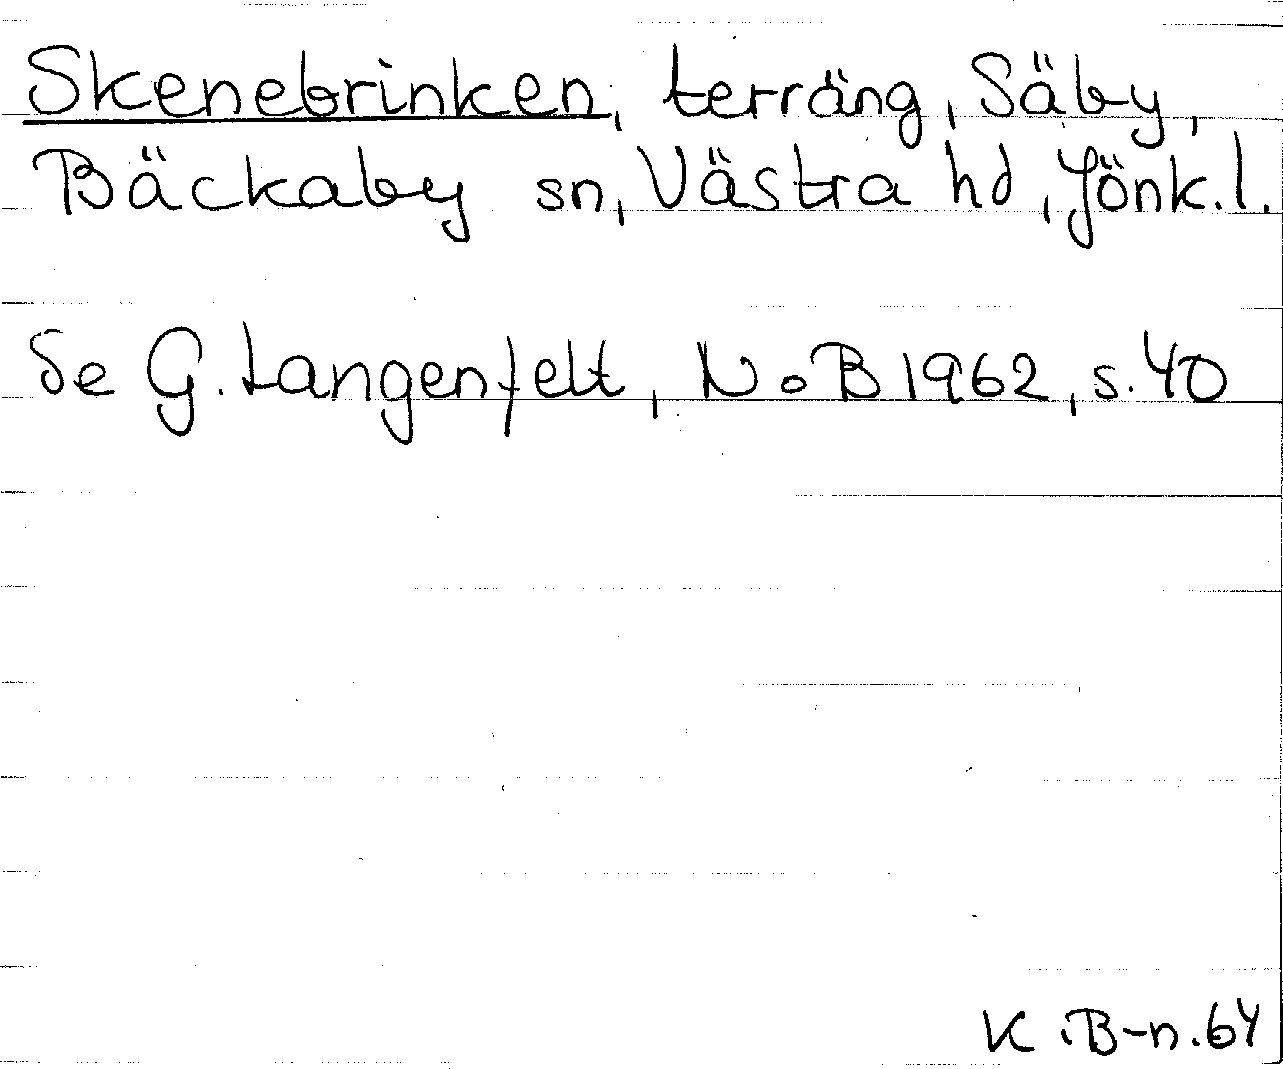 Skenebrinken, terräng, Säby,
Bäckaby sn, Västra hd, Jönk.l.
Se G. Langenfelt, NoB 1962, s. 40
K.B-n. 64